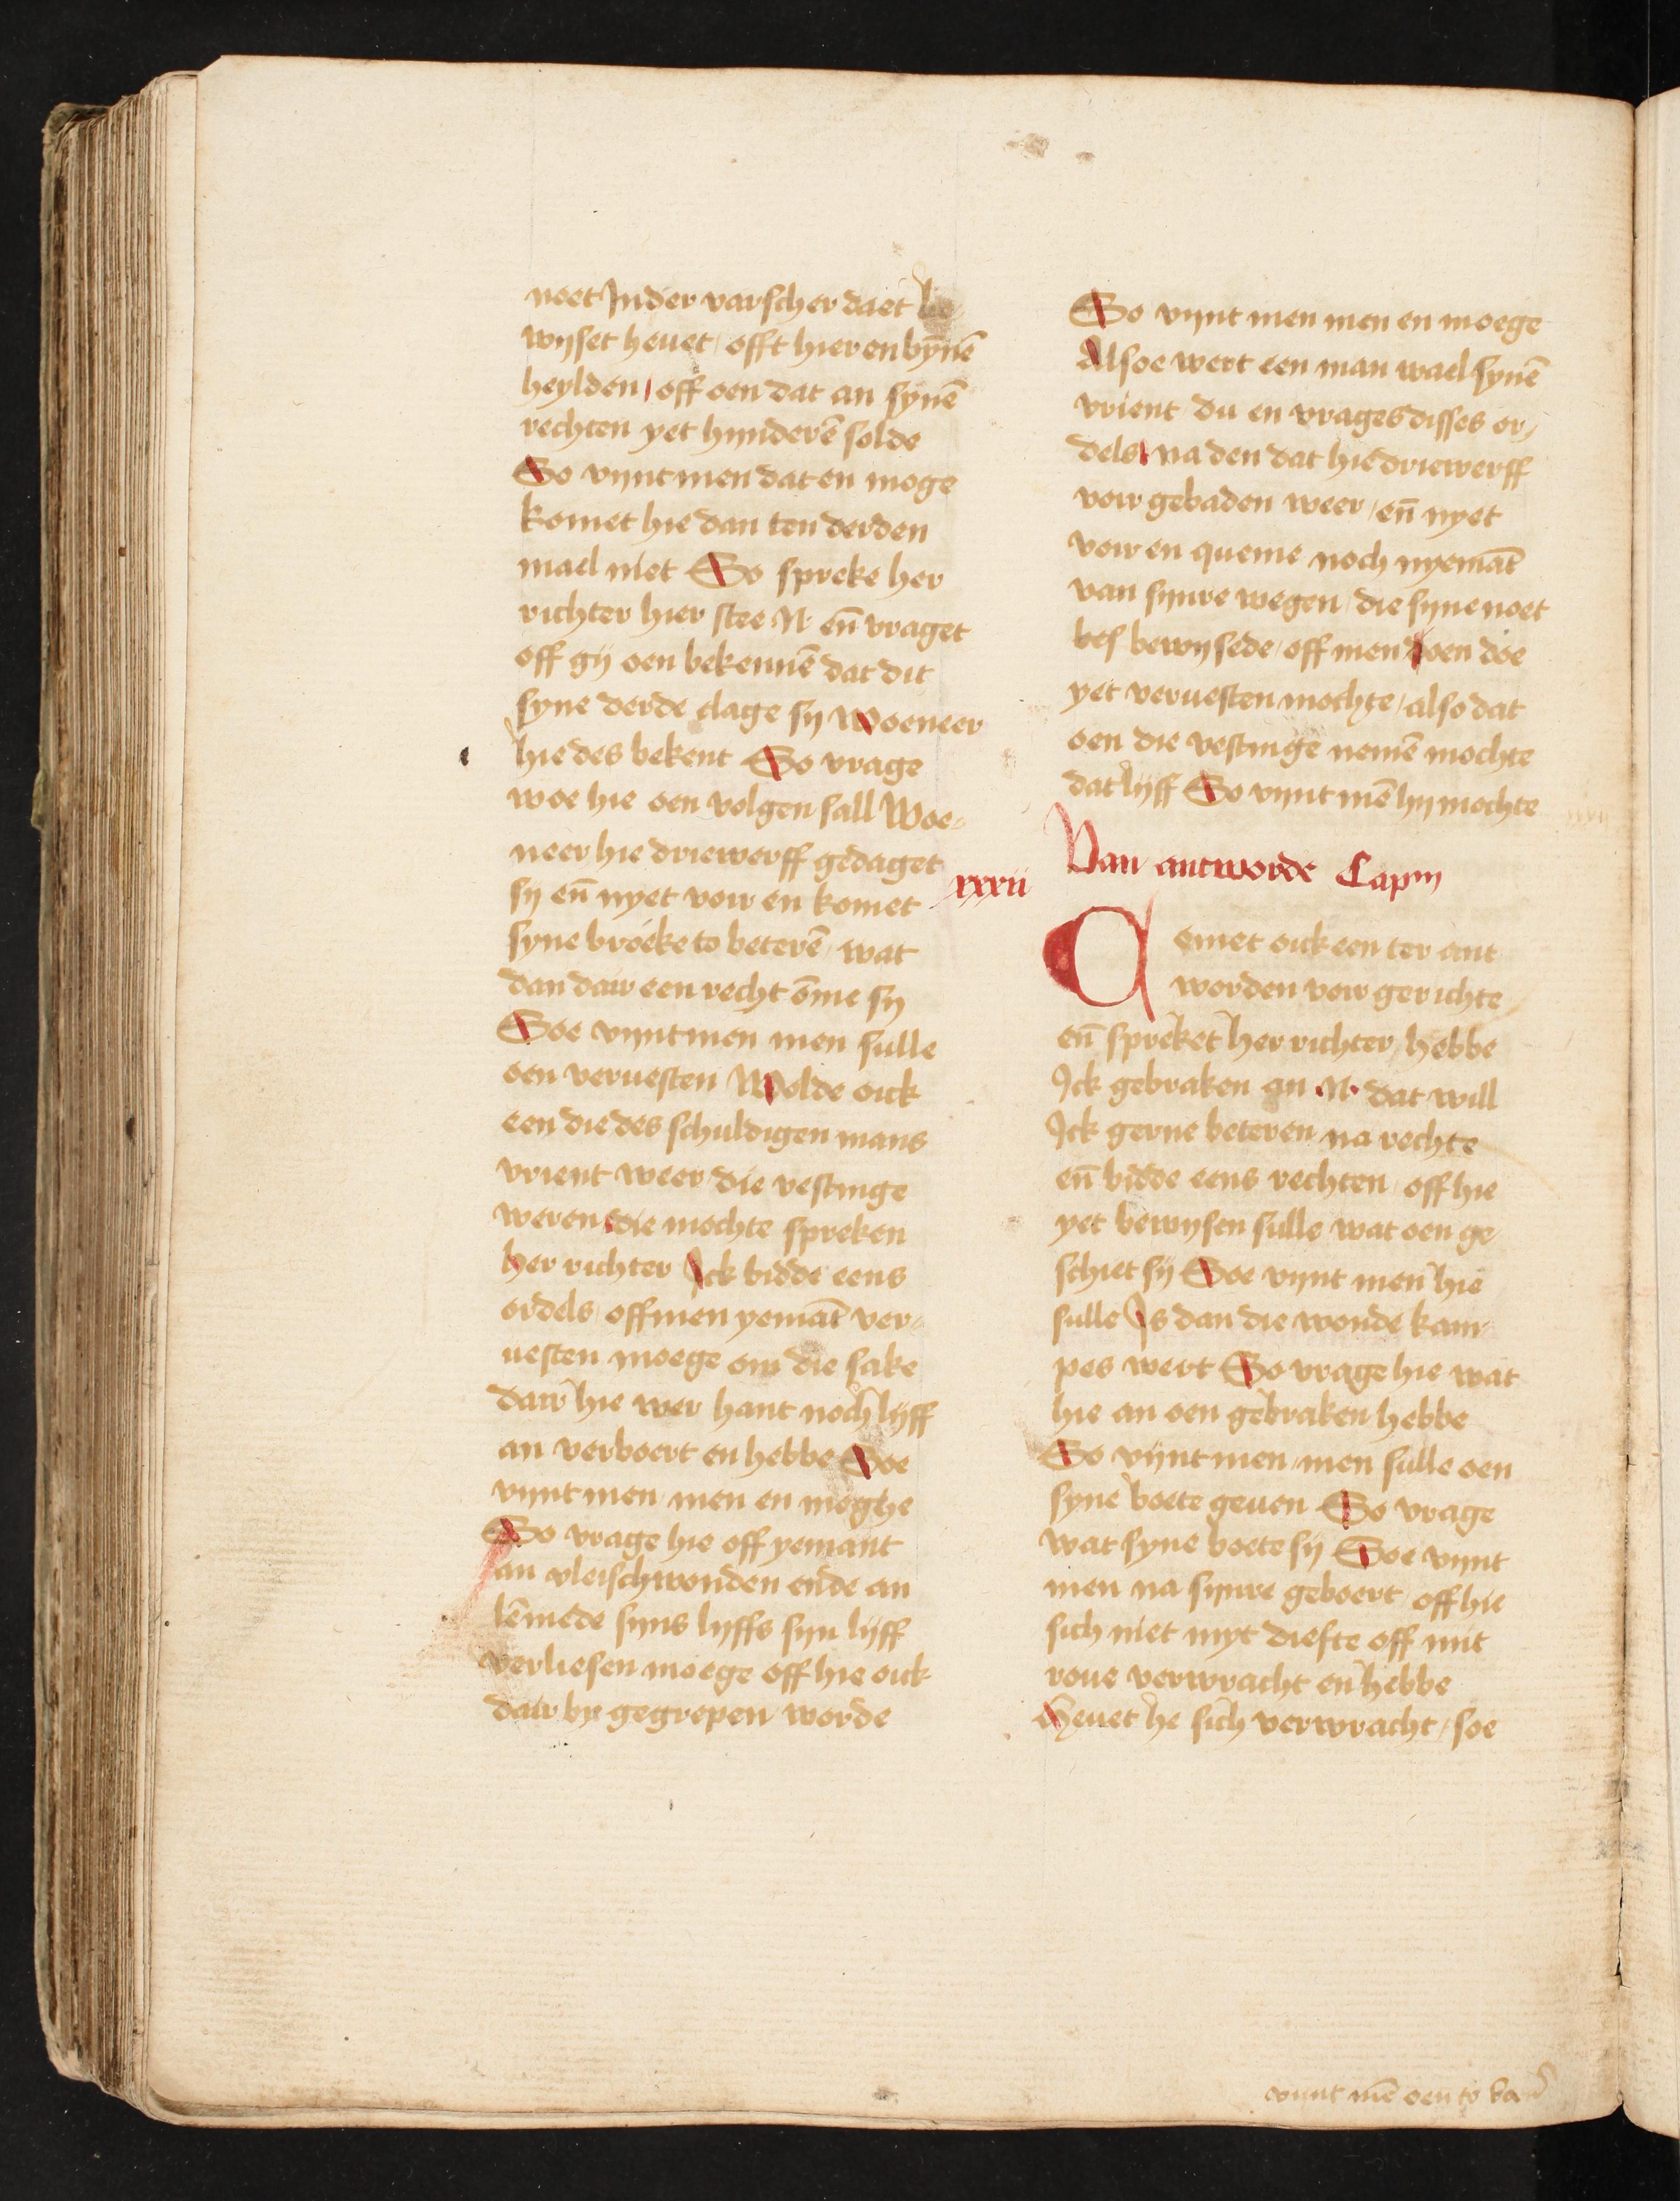 noet Inder varscher daet be
wyset heuet / offt hier en bynnē
heylden / off oen dat an synē
rechten yet hynderē solde
So vynt men dat en moge
komet hie dan ten derden
mael niet So spreke her
richter hier stee N eñ vraget
off gij oen bekennē dat dit
syne derde clage sy Woeneer
hie des bekent So vrage
woe hie oen volgen sall Woe-
neer hie driewerff gedaget
sy eñ nyet voir en komet
syne broeke to beterē / wat
dan dair een recht ōme sy
Soe vynt men men sulle
oen veruesten Wolde oick
een die des schuldigen mans
vrient weer die vestinge
weren die mochte spreken
her richter Ick bidde eens
ordels / off men yemāt ver-
uesten moege om die sake
dair hie wer hant noch lyff
an verboert en hebbe Soe
vynt men men en moghe
So vrage hie off yemant
an vleischwonden ende an
lēmede syns lyffs syn lyff
verliesen moege off hie oick
dair by gegrepen worde
So vynt men men en moege
Alsoe wert een man wael synē
vrient du en vrages disses or/
dels na den dat hie driewerff
voir gebaden weer / eñ nyet
voir en queme noch nyemāt
van synre wegen / die syne noet
bes bewysede / off men oen doe
yet veruesten mochte / also dat
oen die vestinge nemē mochte
dat lyff So vynt mē hy mochte
xxxii Van antworde Capm
C
omet oick een ter ant
worden voir gerichte /
eñ spreket her richter / hebbe
Ick gebraken an .N. dat will
Ick gerne beteren na rechte
eñ bidde eens rechten / off hie
yet bewysen sulle wat oen ge
schiet sij Soe vynt men hie
sulle Is dan die wonde kam-
pes wert So vrage hie wat
hie an oen gebraken hebbe
So vynt men / men sulle oen
syne boete geuen So vrage
wat syne boete sij Soe vynt
men na synre geboert / off hie
sich niet myt diefte off mit
roue verwracht en hebbe
Heuet he sich verwracht / soe
vynt mē oen to